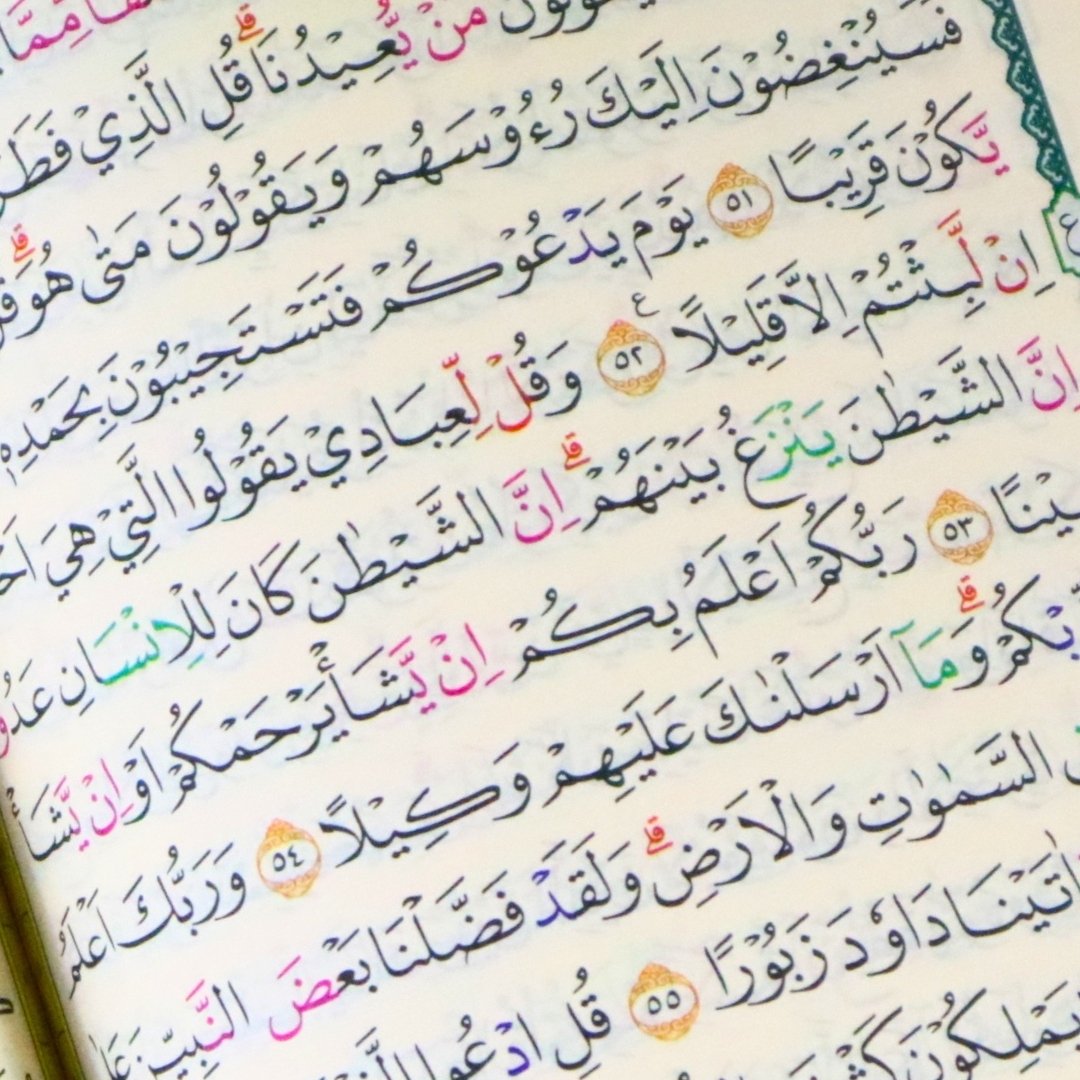 مِمَّا
مَنْ يُّعِيْدُنَا ۗ قُلِ الَّذِيْ فَطَرَ
فَسَيُنْغِضُوْنَ اِلَيْكَ رُءُوْسَهُمْ وَيَقُوْلُوْنَ مَتٰى هُوَ ۗ قُلْ
يَّكُوْنَ قَرِيْبًا ٥١ يَوْمَ يَدْعُوْكُمْ فَتَسْتَجِيْبُوْنَ بِحَمْدِهٖ
اِنْ لَّبِثْتُمْ اِلَّا قَلِيْلًا ࣖ ٥٢ وَقُلْ لِّعِبَادِيْ يَقُوْلُوا الَّتِيْ هِيَ
اِنَّ الشَّيْطٰنَ يَنْزَغُ بَيْنَهُمْ ۗ اِنَّ الشَّيْطٰنَ كَانَ لِلْاِنْسَانِ
٥٣ رَبُّكُمْ اَعْلَمُ بِكُمْ اِنْ يَّشَأْ يَرْحَمْكُمْ اَوْ اِنْ يَّشَأْ
ۗ وَمَآ اَرْسَلْنٰكَ عَلَيْهِمْ وَكِيْلًا ٥٤ وَرَبُّكَ اَعْلَمُ
السَّمٰوٰتِ وَالْاَرْضِ ۗ وَلَقَدْ فَضَّلْنَا بَعْضَ النَّبِيّٖنَ
اٰتَيْنَا دَاوٗدَ زَبُوْرًا ٥٥ قُلِ ادْعُوا
يَمْلِكُوْنَ